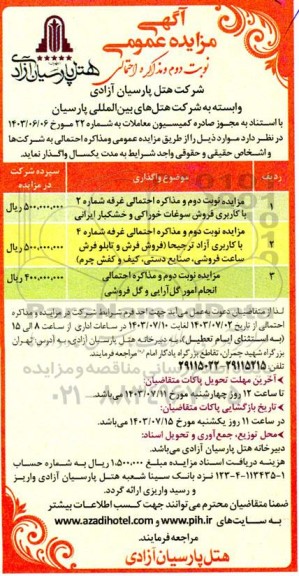 آگهی
مزایده عمومی
نوبت دوم و مذاکره احتمالی
هتل پارسیان آزادی
شرکت هتل پارسیان آزادی
وابسته به شرکت هتل‌های بین‌المللی پارسیان
با استناد به مجوز صادره کمیسیون معاملات به شماره ۲۲ مورخ ۱۴۰۳/۰۶/۰۶
در نظر دارد موارد ذیل را از طریق مزایده عمومی ومذاکره احتمالی به شرکت‌ها
و اشخاص حقیقی و حقوقی واجد شرایط به مدت یکسال واگذار نماید.
ردیف
موضوع واگذاری
سپرده شرکت در مزایده
۱
مزایده نوبت دوم و مذاکره احتمالی غرفه شماره ۲
با کاربری فروش سوغات خوراکی و خشکبار ایرانی
۵۰۰،۰۰۰،۰۰۰ ریال
۲
مزایده نوبت دوم و مذاکره احتمالی غرفه شماره ۴
با کاربری آزاد ترجیحا (فروش فرش و تابلو فرش
ساعت فروشی، صنایع دستی، کیف و کفش چرم)
۵۰۰،۰۰۰،۰۰۰ ریال
۳
مزایده نوبت دوم و مذاکره احتمالی
انجام امور گل‌آرایی و گل فروشی
۲۰۰،۰۰۰،۰۰۰ ریال
لذا از متقاضیان دعوت به عمل می‌آید جهت اخذ فرم شرایط شرکت در مزایده و مذاکره
احتمالی از تاریخ ۱۴۰۳/۰۷/۰۲ لغایت ۱۴۰۳/۰۷/۱۰ در ساعات اداری از ساعت ۸ الی ۱۵
(به استثنای ایام تعطیل)، به دبیرخانه هتل پارسیان آزادی، به آدرس: تهران
بزرگراه شهید چمران، تقاطع بزرگراه یادگار امام مراجعه فرمایند.
تلفن ۲۹۱۱۵۲۱۵-۲۹۱۱۵۰۲۲
آخرین مهلت تحویل پاکات متقاضیان:
تا ساعت ۱۲ روز چهارشنبه مورخ ۱۴۰۳/۰۷/۱۱ می‌باشد.
تاریخ بازگشایی پاکات متقاضیان:
در ساعت ۱۱ روز یکشنبه مورخ ۱۴۰۳/۰۷/۱۵ می‌باشد.
محل توزیع، جمع‌آوری و تحویل اسناد:
دبیرخانه هتل پارسیان آزادی می‌باشد.
هزینه دریافت اسناد مزایده مبلغ ۱،۵۰۰،۰۰۰ ریال به شماره حساب
۱۲۳-۴-۱۱۲۴۳۵-۱ نزد بانک سینا شعبه هتل پارسیان آزادی واریز
و رسید واریزی ارائه گردد.
ضمنا متقاضیان محترم می‌توانند جهت کسب اطلاعات بیشتر
به سایت‌های www.pih.ir و www.azadihotel.com
مراجعه فرمایند.
هتل پارسیان آزادی